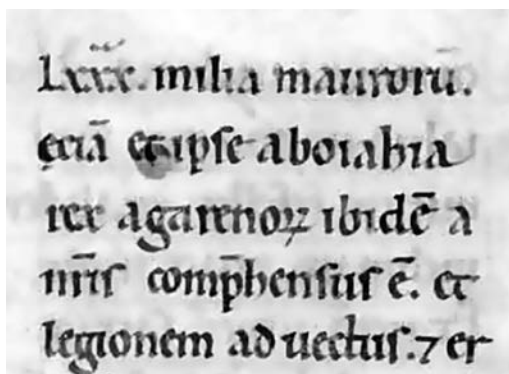 Lxxx. milia maurorū.
ęciā et ipſe aboiahia
rex agarenoꝝ ibidē a
nr̄iſ comp̄henſuſ ē. et
legionem ad uectuſ. ⁊ er